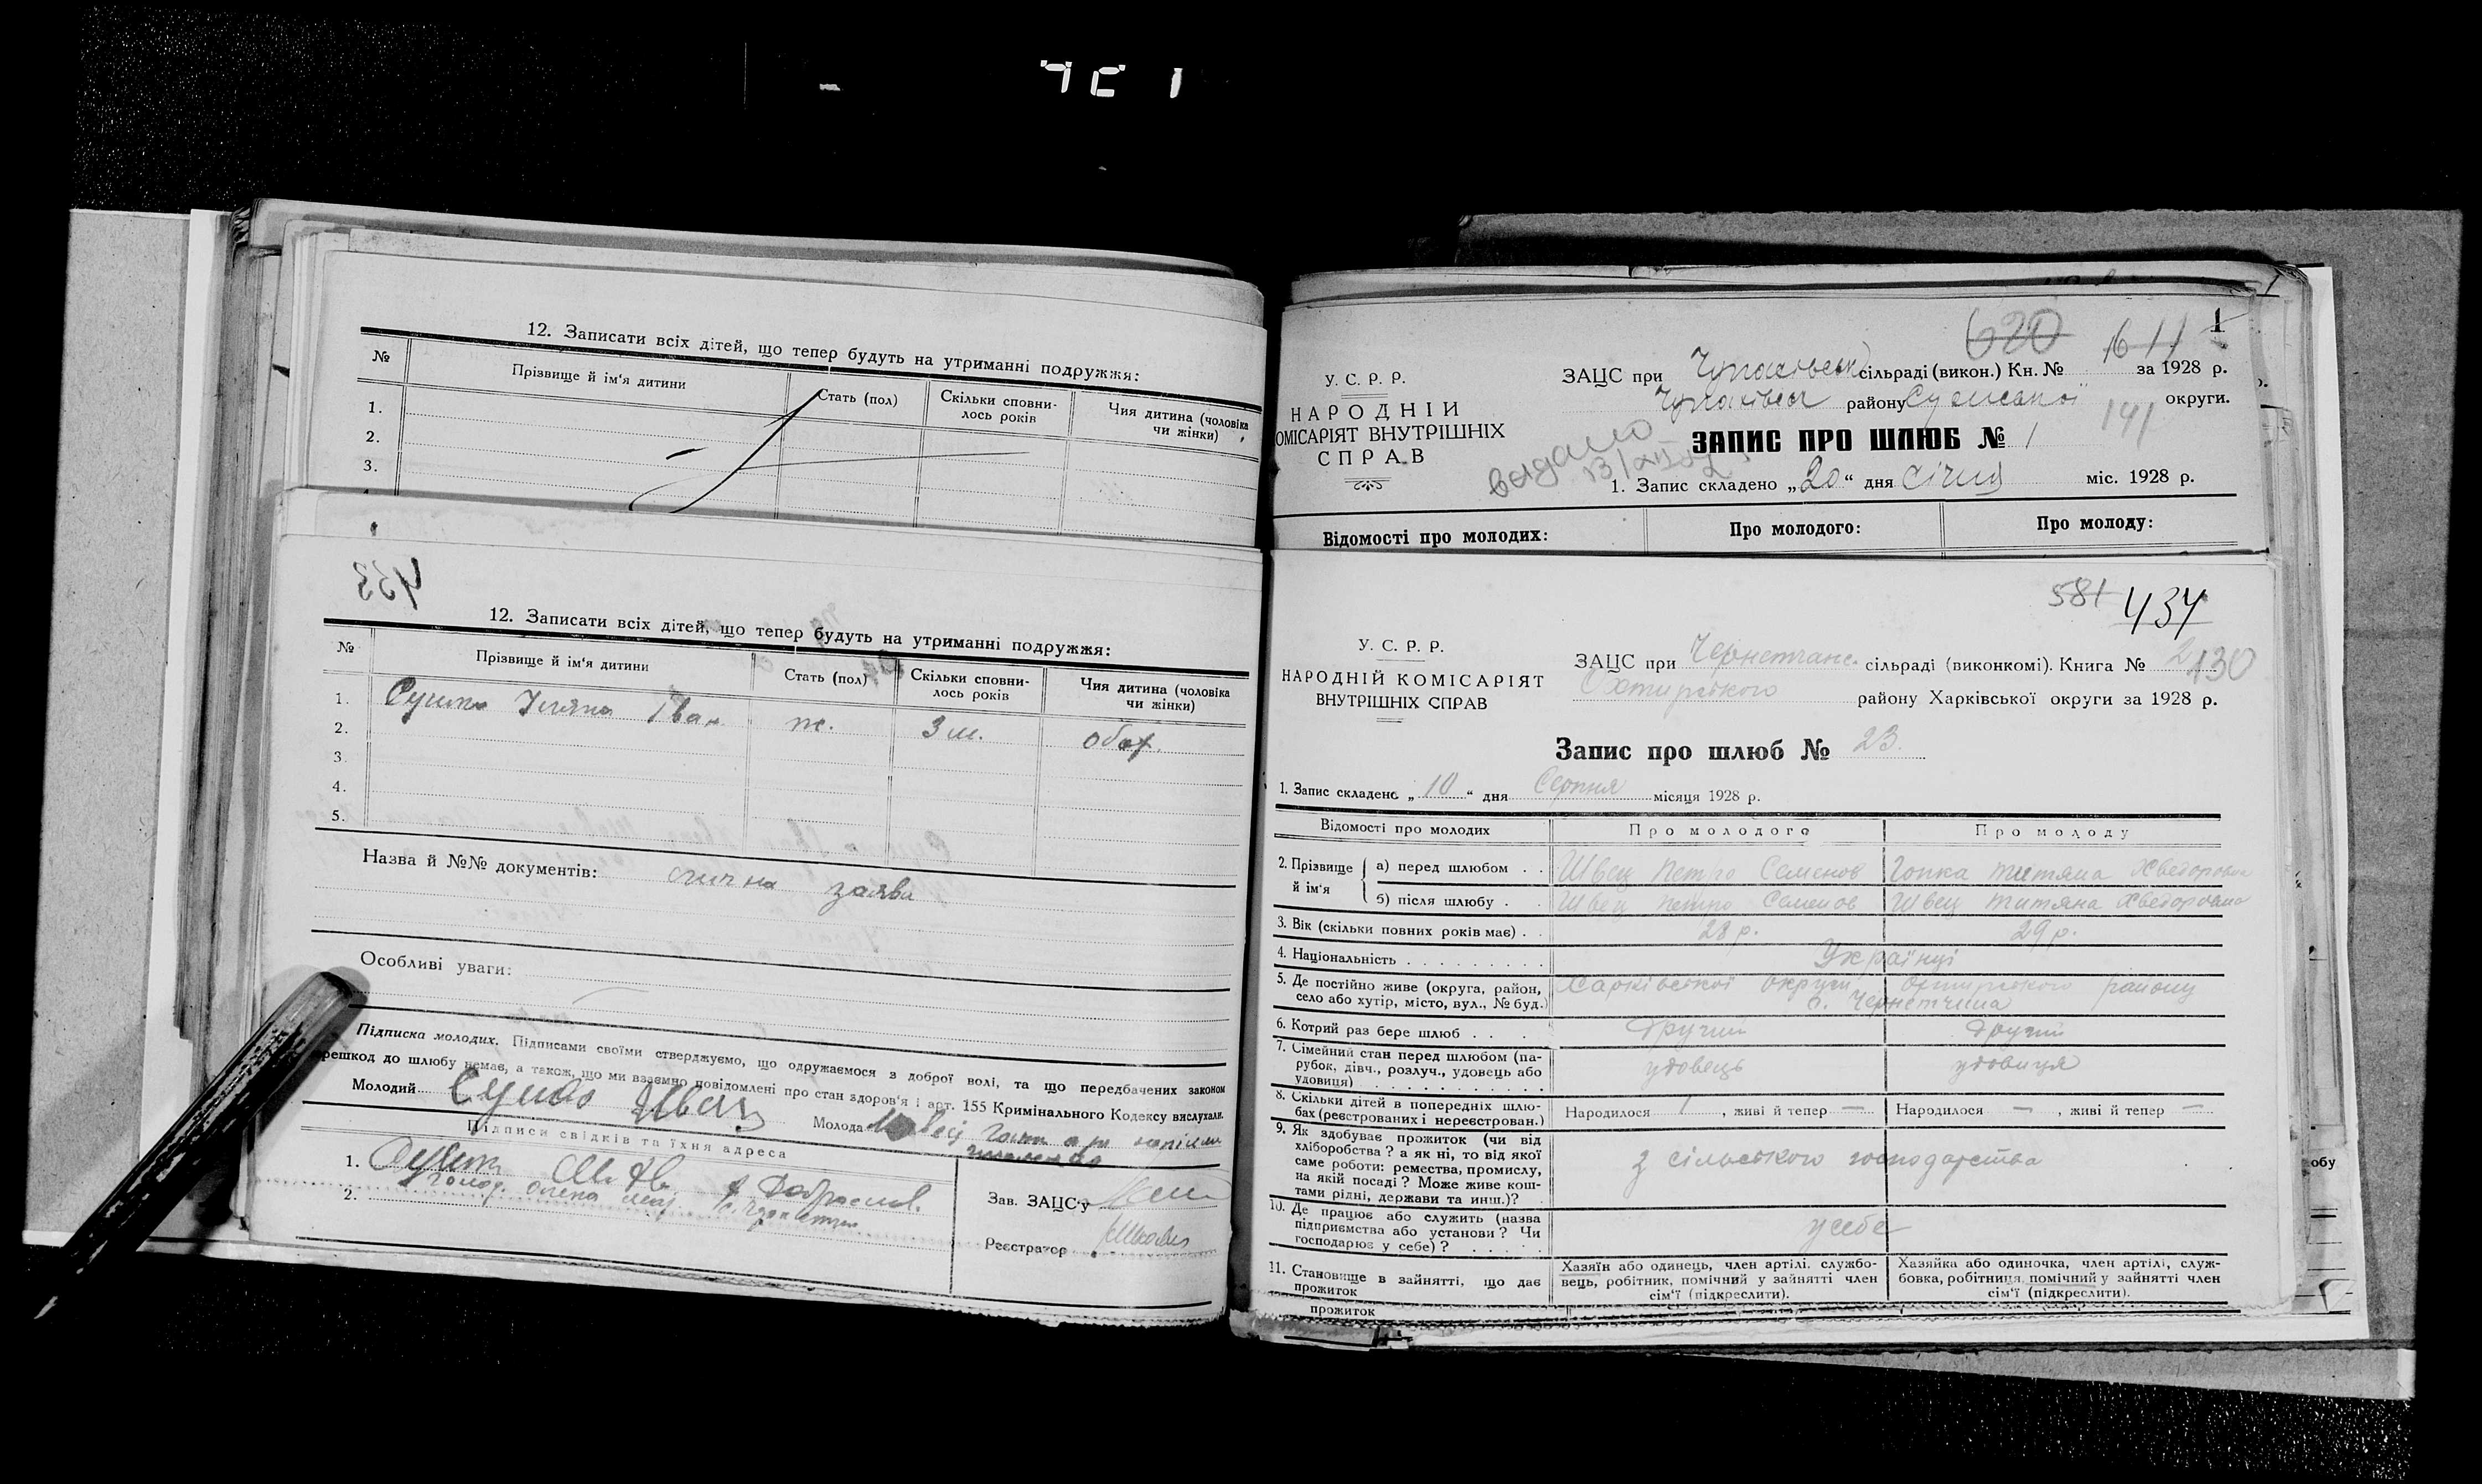 12. Записати всіх дітей, що тепер будуть на утриманні подружжя:
№ Прізвище й ім'я дитини Стать (пол) Скільки сповнилось років Чия дитина (чоловіка чи жінки)
1.
2.
3.
453
12. Записати всіх дітей, що тепер будуть на утриманні подружжя:
№ Прізвище й ім'я дитини Стать (пол) Скільки сповнилось років Чия дитина (чоловіка чи жінки)
1. Сушко Іван. ж. 3 м. обох.
2.
3.
4.
5.
Назва й №№ документів: заява
Особливі уваги:
Підписка молодих. Підписами своїми стверджуємо, що одружаємося з доброї волі, та що передбачених законом
решкод до шлюбу немає, а також, що ми взаємно повідомлені про стан здоров'я і арт. 155 Кримінального Кодексу вислухали.
Молодий Сушко Иван Молода
Підписи свідків та їхня адреса
1.
2.
Зав. ЗАЦС'у
Реєстратор
620 1611 1
У. С. Р. Р.
НАРОДНІЙ
ОМІСАРІЯТ ВНУТРІШНІХ
СПРАВ
ЗАЦС при Чупахівськ сільраді (викон.) Кн. № за 1928 р.
Чупахівськ району Сумської округи.
141
ЗАПИС ПРО ШЛЮБ № 1
видано
1. Запис складено „20“ дня січня міс. 1928 р.
Відомості про молодих: Про молодого: Про молоду:
581 434
У. С. Р. Р.
НАРОДНІЙ КОМІСАРІЯТ
ВНУТРІШНІХ СПРАВ
ЗАЦС при Чернетчанс. сільраді (виконкомі). Книга № 2 130
Охтирського району Харківської округи за 1928 р.
Запис про шлюб № 23.
1. Запис складено „10“ дня Серпня місяця 1928 р.
Відомості про молодих Про молодого Про молоду
2. Прізвище й ім'я а) перед шлюбом . . Швец Петро Семенов Гопка Титяна Хведоровна
б) після шлюбу . Швец Петро Семенов Швец Титяна Хведоровна
3. Вік (скільки повних років має) . . 28 р. 29 р.
4. Національність . . . . . . . . . Українці
5. Де постійно живе (округа, район, село або хутір, місто, вул., № буд.) Харківської округи Охтирського району
с. Чернетчина
6. Котрий раз бере шлюб . . . Другий Другий
7. Сімейний стан перед шлюбом (парубок, дівч., розлуч., удовець або удовиця) удовець удовиця
8. Скільки дітей в попередніх шлюбах (реєстрованих і нереєстрован.) Народилося 1, живі й тепер — Народилося —, живі й тепер —
9. Як здобуває прожиток (чи від
хліборобства? а як ні, то від якої
саме роботи: ремества, промислу,
на якій посаді? Може живе коштами рідні, держави та инш.)? з сільського господарства
10. Де працює або служить (назва
підприємства або установи? Чи
господарює у себе)? . . . . . у себе
11. Становище в зайнятті, що дає прожиток
Хазяїн або одинець, член артілі, службовець, робітник, помічний у зайнятті член сім'ї (підкреслити).
Хазяйка або одиночка, член артілі, службовка, робітниця, помічний у зайнятті член сім'ї (підкреслити).
прожиток
обу